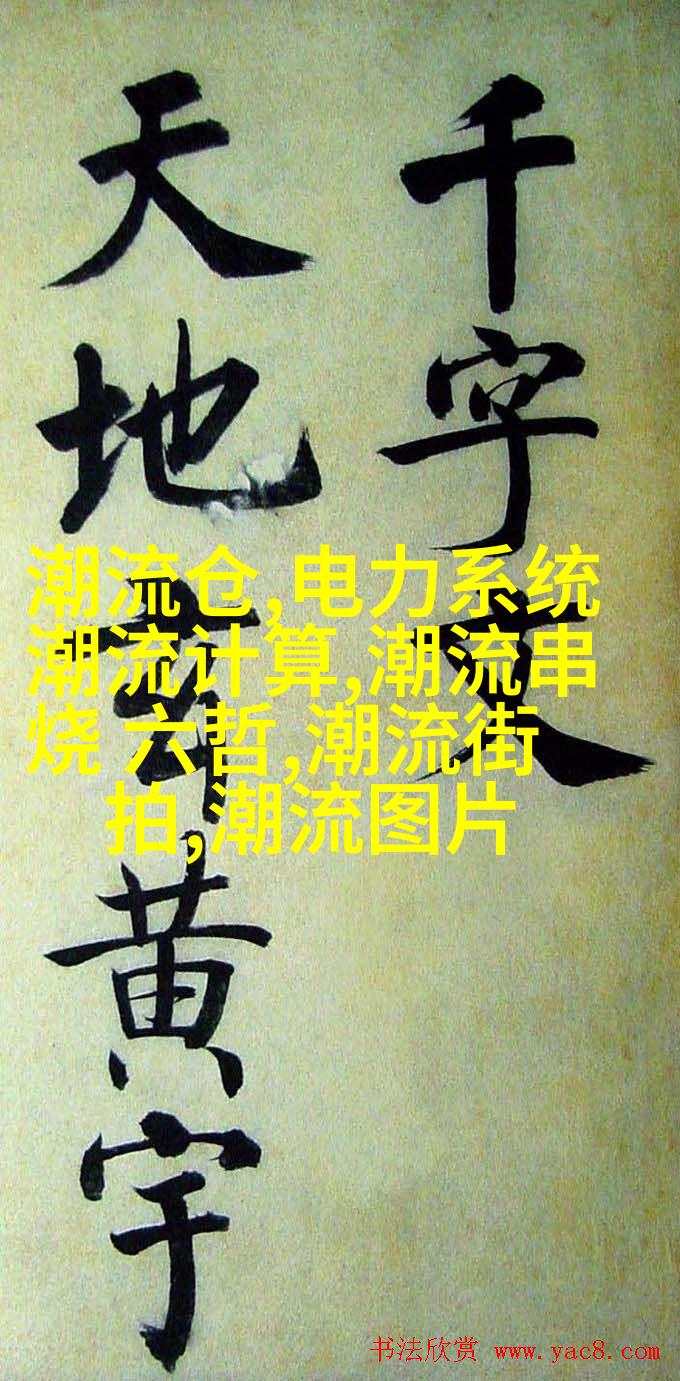 千字文
天地玄黄宇
潮流仓,电力系统
潮流计算,潮流串
烧 六哲,潮流街
拍,潮流图片
书法欣赏 www.yac8.com